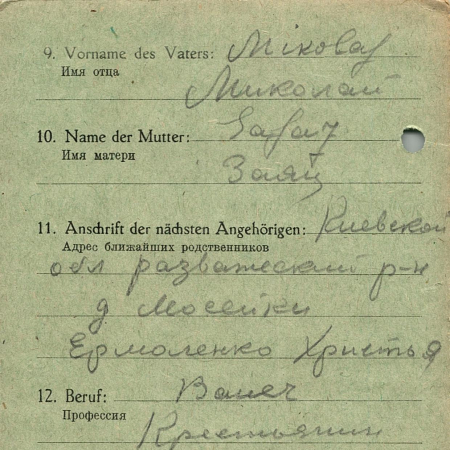 9. Vorname des Vaters: Mikolaj
Имя отца
Миколай
10. Name der Mutter: Sajaz
Имя матери
Заяц
11. Anschrift der nächsten Angehörigen: Киевской
Адрес ближайших родственников
обл розважевский р-н
д Мосейки
Ермоленко Христья
12. Beruf: Bauer
Профессия
Крестьянин